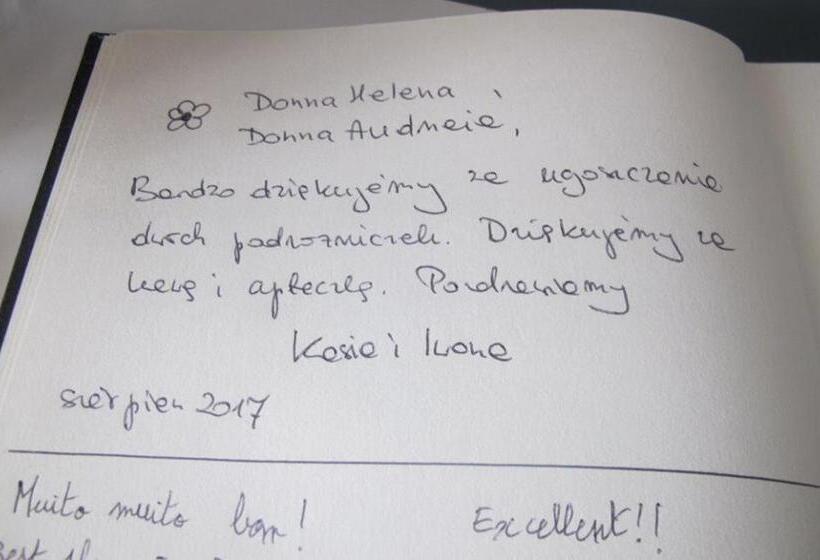 Donna Helena,
Donna Audneia,
Bardzo dziękujemy za ugoszczenie
dwóch podrożniczek. Dziękujemy za
kawę i apteczkę. Pozdrawiamy
Kasia i Iwona
sierpień 2017
Muito muito bom! Excellent!!
Best